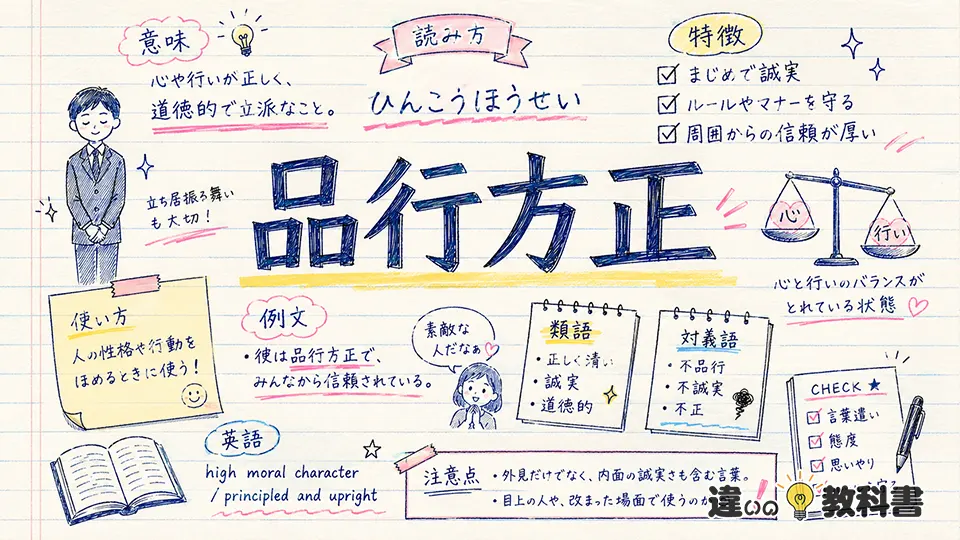 意味
心や行いが正しく、
道徳的で立派なこと。
立ち居振る舞い
も大切!
読み方
ひんこうほうせい
特徴
まじめで誠実
ルールやマナーを守る
周囲からの信頼が厚い
品行方正
心
行い
心と行いのバランスが
とれている状態
使い方
人の性格や行動を
ほめるときに使う!
例文
・彼は品行方正で、
みんなから信頼されている。
素敵な
人だなぁ
類語
・正しく清い
・誠実
・道徳的
対義語
・不品行
・不誠実
・不正
CHECK ★
言葉遣い
態度
思いやり
英語
high moral character
/ principled and upright
注意点
・外見だけでなく、内面の誠実さも含む言葉。
・目上の人や、改まった場面で使うのが
違いの教科書